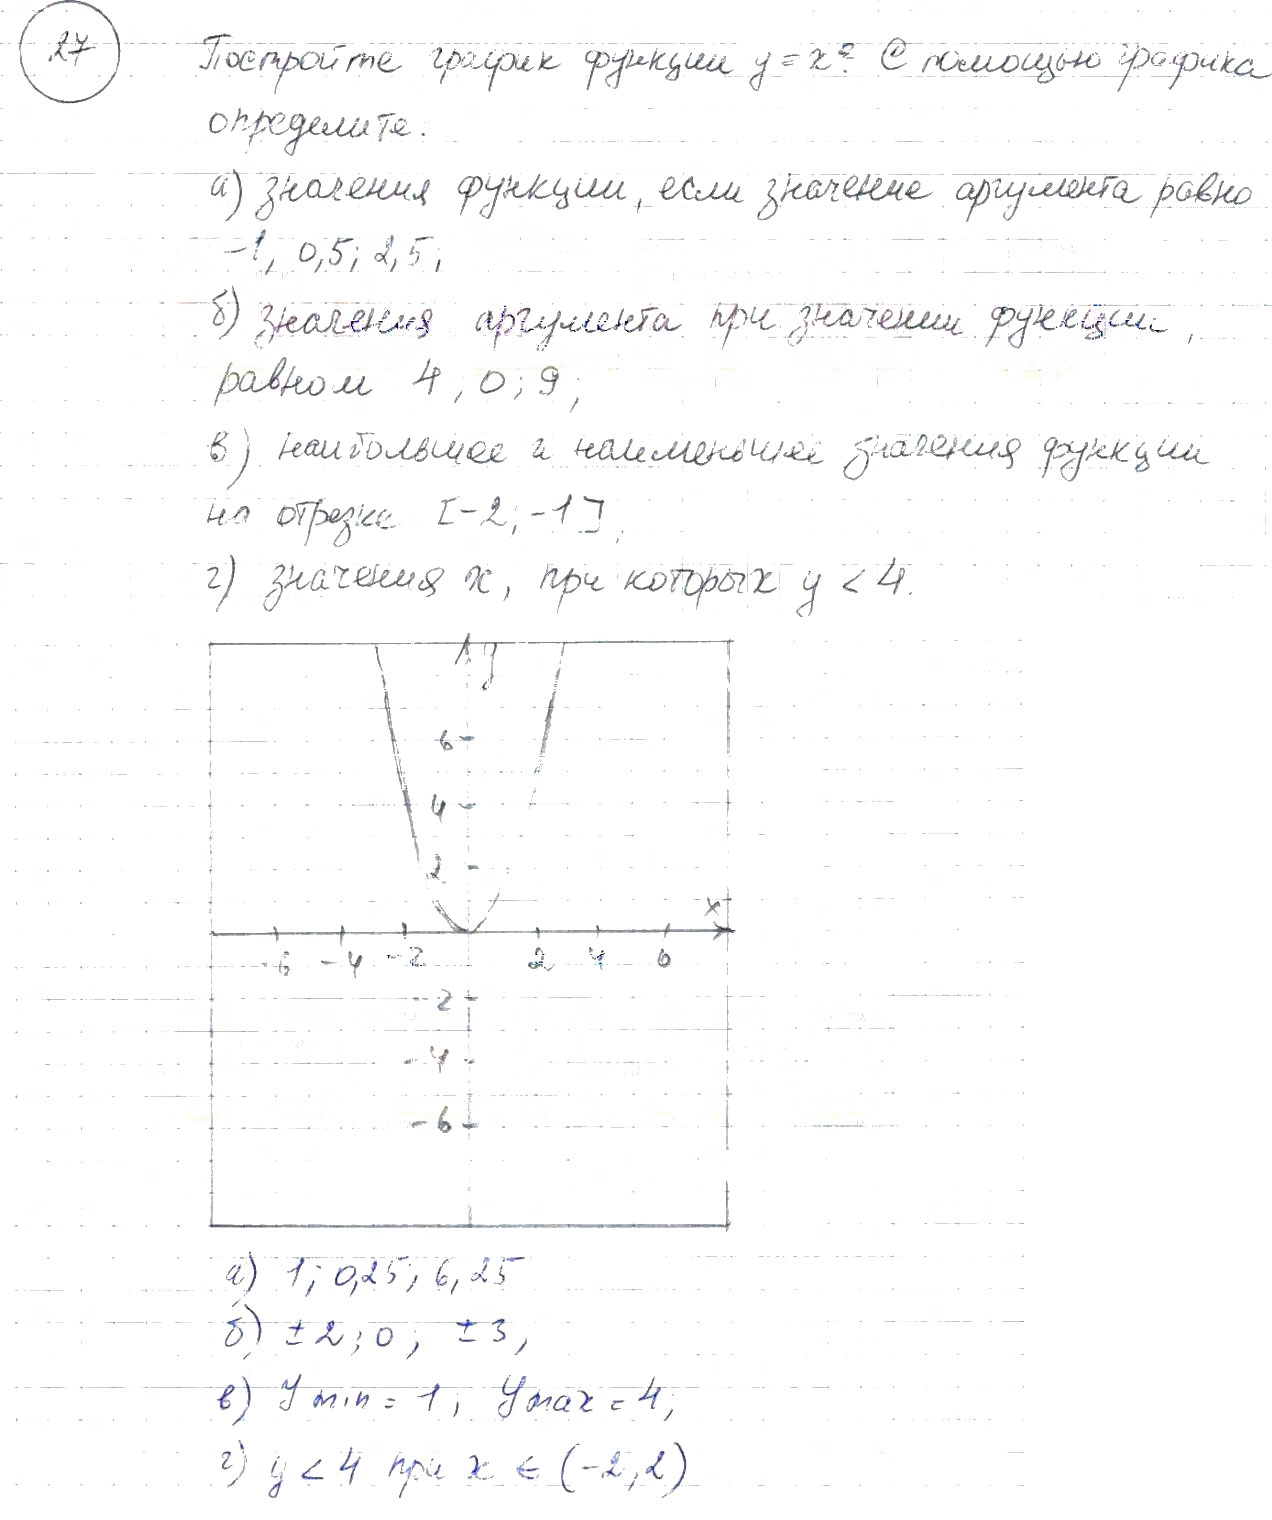 27
Постройте график функции y = x². С помощью графика
определите.
а) значения функции, если значение аргумента равно
-1, 0,5; 2,5;
б) значения аргумента при значении функции,
равном 4, 0; 9;
в) наибольшее и наименьшее значения функции
на отрезке [-2; -1];
г) значения x, при которых y < 4.
y
6
4
2
x
-6 -4 -2 2 4 6
-2
-4
-6
а) 1; 0,25; 6,25
б) ±2; 0; ±3;
в) y min = 1; y max = 4;
г) y < 4 при x ∈ (-2, 2)